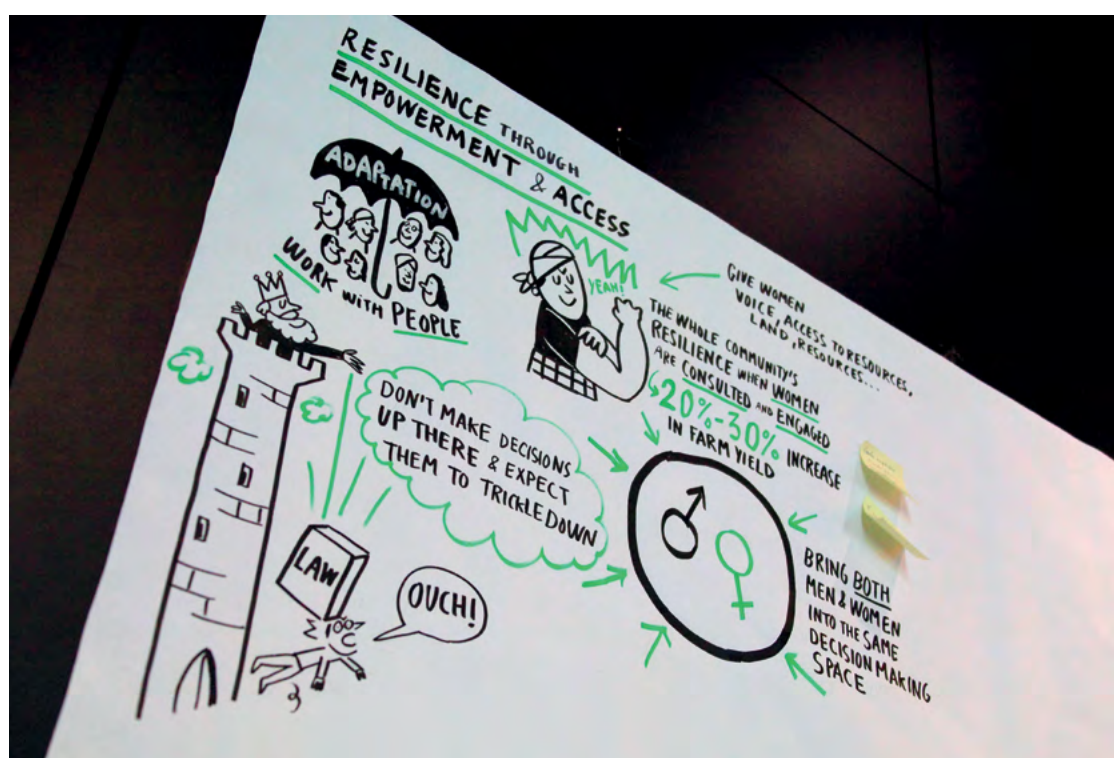 RESILIENCE THROUGH
EMPOWERMENT & ACCESS
ADAPTATION
WORK WITH PEOPLE
YEAH!
GIVE WOMEN
VOICE, ACCESS TO RESOURCES,
LAND, RESOURCES...
THE WHOLE COMMUNITY'S
RESILIENCE WHEN WOMEN
ARE CONSULTED AND ENGAGED
20%-30% INCREASE
IN FARM YIELD
DON'T MAKE DECISIONS
UP THERE & EXPECT
THEM TO TRICKLE DOWN
LAW
OUCH!
BRING BOTH
MEN & WOMEN
INTO THE SAME
DECISION MAKING
SPACE